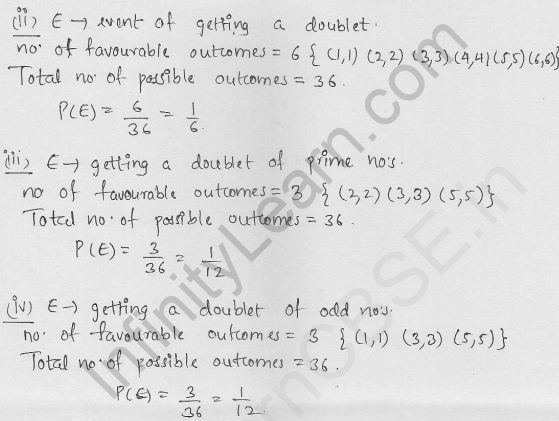 (ii) E → event of getting a doublet.
no. of favourable outcomes = 6 { (1,1) (2,2) (3,3) (4,4) (5,5) (6,6)}
Total no. of possible outcomes = 36.
P(E) = 6/36 = 1/6.
(iii) E → getting a doublet of prime no's.
no of favourable outcomes = 3 { (2,2) (3,3) (5,5)}
Total no. of possible outcomes = 36.
P(E) = 3/36 = 1/12
(iv) E → getting a doublet of odd no's.
no. of favourable outcomes = 3 { (1,1) (3,3) (5,5)}
Total no. of possible outcomes = 36.
P(E) = 3/36 = 1/12.
InfinityLearn.com
rnCBSE.in